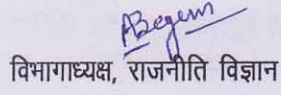 ABegem
विभागाध्यक्ष, राजनीति विज्ञान